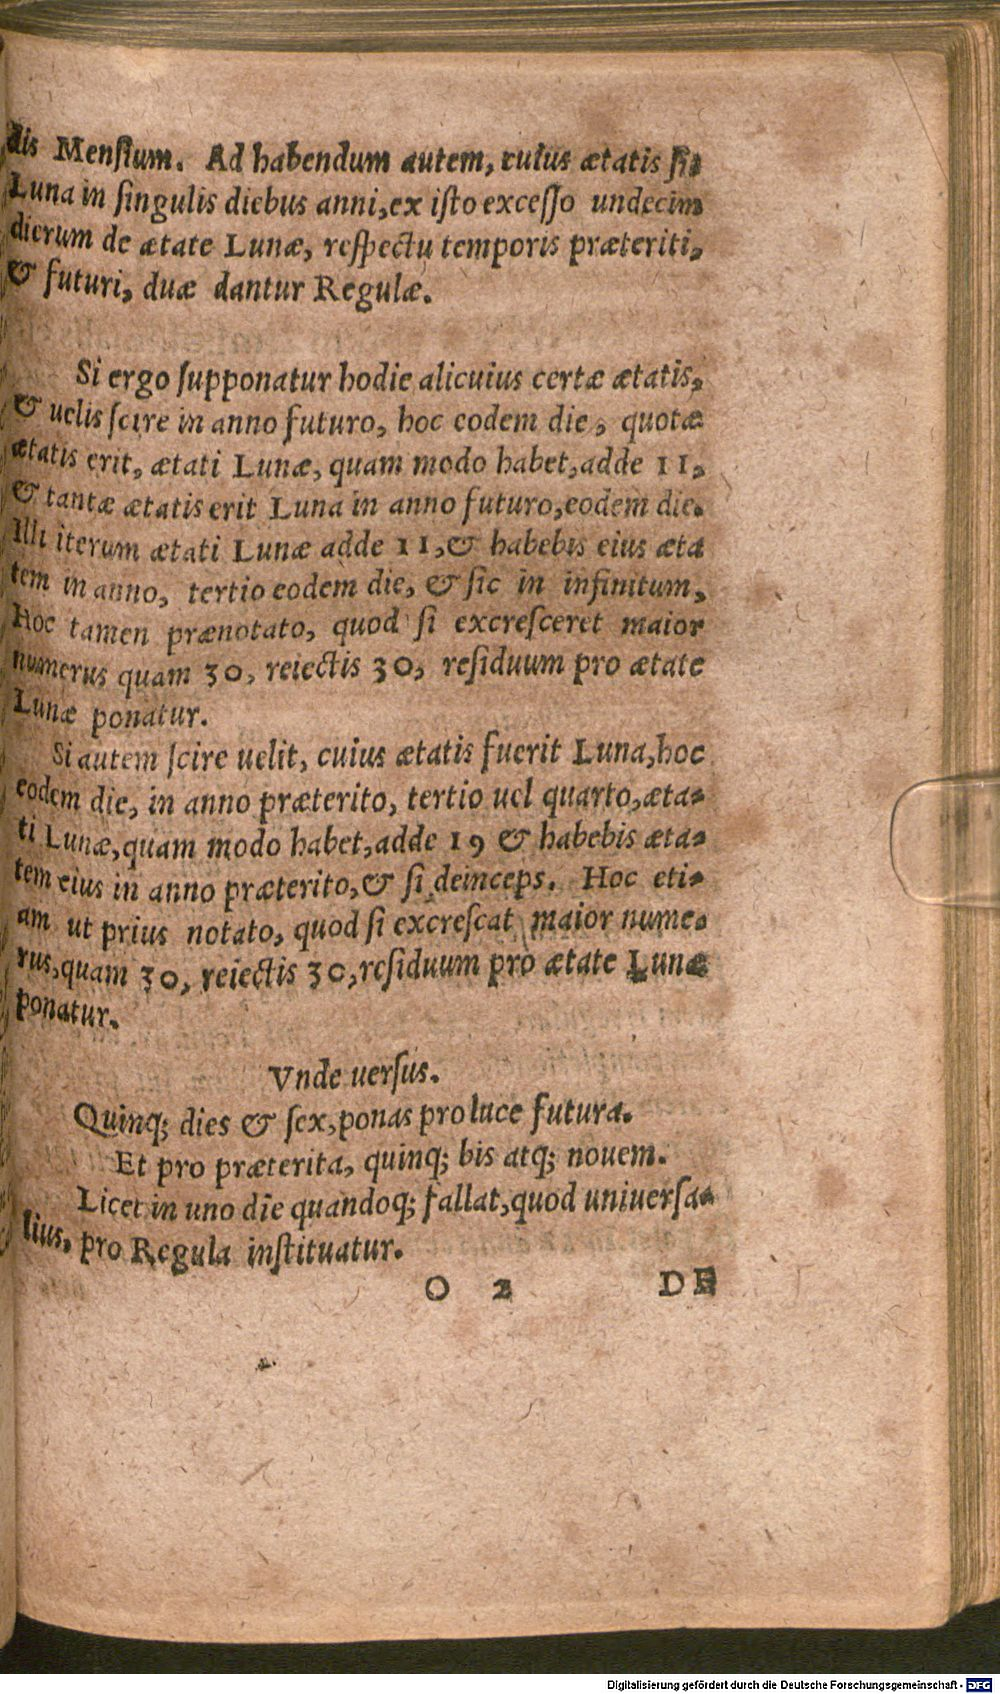 dis Mensium. Ad habendum autem, cuius ætatis sit
Luna in singulis diebus anni, ex isto excesso undecim
dierum de ætate Lunæ, respectu temporis præteriti,
& futuri, duæ dantur Regulæ.
Si ergo supponatur hodie alicuius certæ ætatis,
& uelis scire in anno futuro, hoc eodem die, quotæ
ætatis erit, ætati Lunæ, quam modo habet, adde 11,
& tantæ ætatis erit Luna in anno futuro, eodem die.
Illi iterum ætati Lunæ adde 11, & habebis eius æta
tem in anno, tertio eodem die, & sic in infinitum,
Hoc tamen prænotato, quod si excresceret maior
numerus quam 30, reiectis 30, residuum pro ætate
Lunæ ponatur.
Si autem scire uelit, cuius ætatis fuerit Luna, hoc
eodem die, in anno præterito, tertio uel quarto, æta-
ti Lunæ, quam modo habet, adde 19 & habebis æta-
tem eius in anno præterito, & si deinceps. Hoc eti-
am ut prius notato, quod si excrescat maior nume-
rus, quam 30, reiectis 30, residuum pro ætate Lunæ
ponatur.
Vnde uersus.
Quinq; dies & sex, ponas pro luce futura.
Et pro præterita, quinq; bis atq; nouem.
Licet in uno die quandoq; fallat, quod uniuersa-
lius, pro Regula instituatur.
O 2 DE
Digitalisierung gefördert durch die Deutsche Forschungsgemeinschaft - DFG